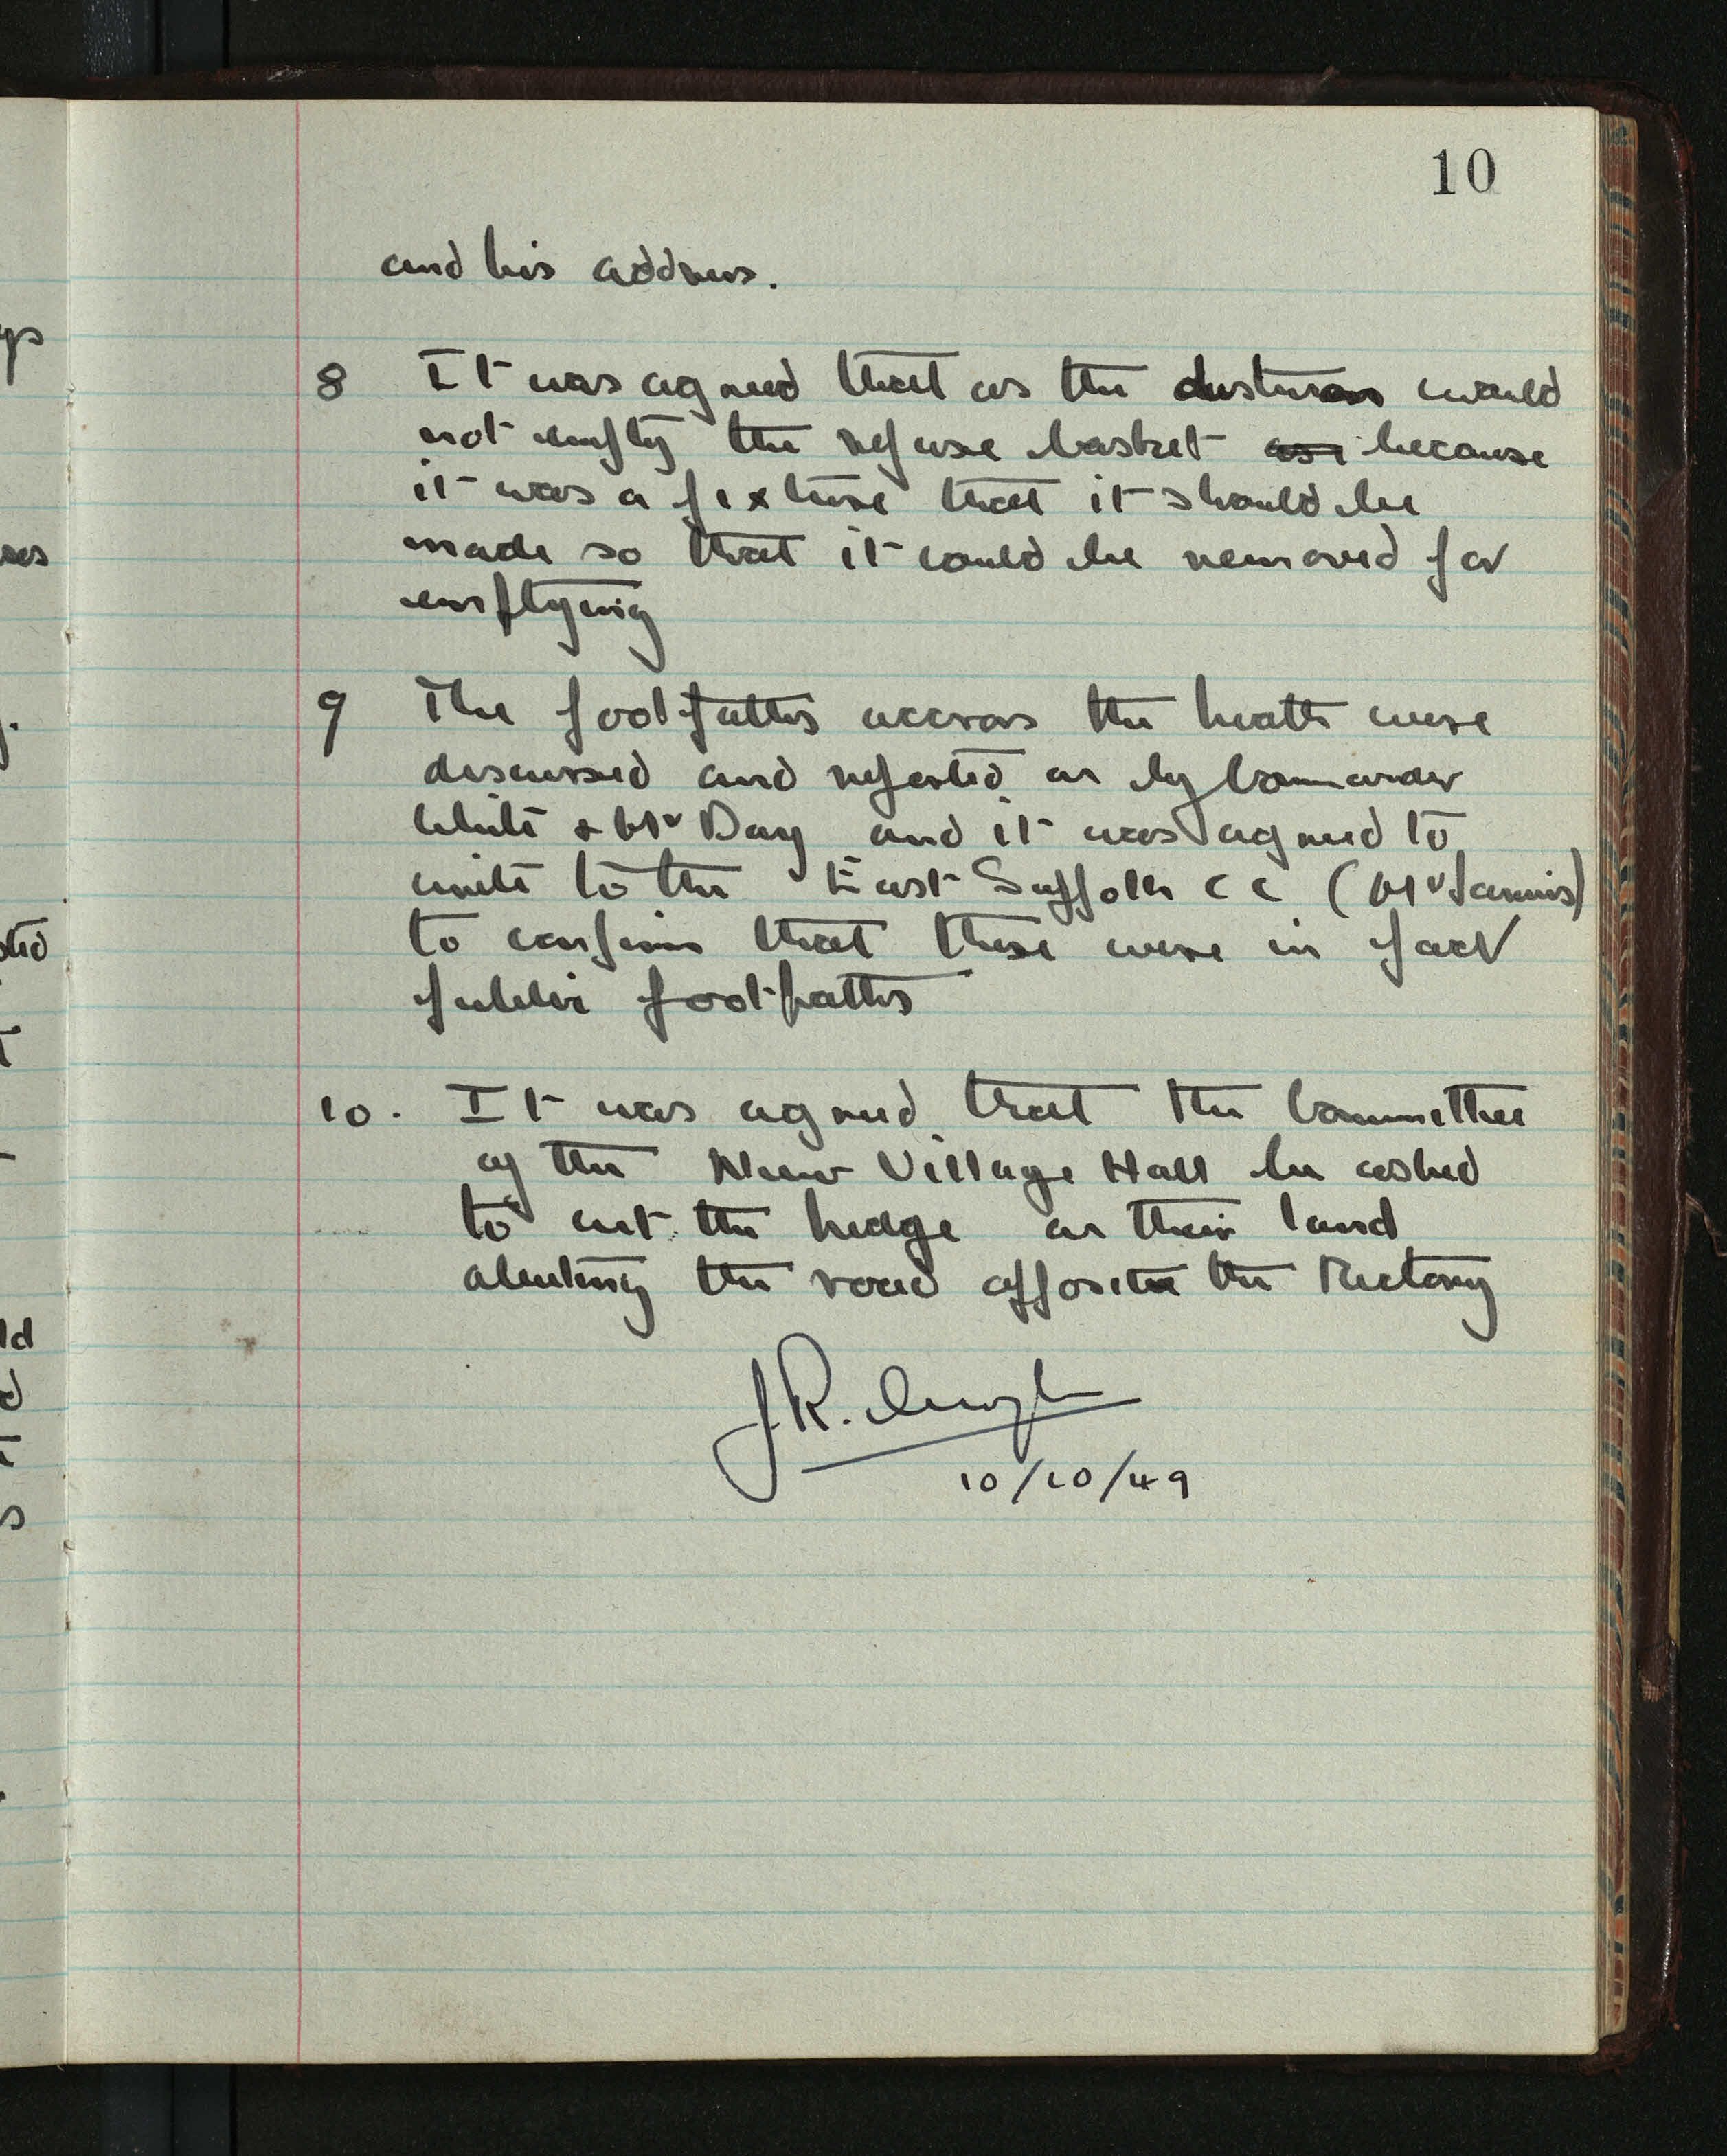 10
and his address.
8 It was agreed that as the dustman would
not empty the refuse basket as because
it was a fixture that it should be
made so that it could be removed for
emptying
9 The footpaths accross the heath were
discussed and reported on by Commander
White & Mr Day and it was agreed to
write to the East Suffolk CC (Mr Jarvis)
to confirm that these were in fact
public footpaths
10. It was agreed that the Committee
of the New Village Hall be asked
to cut the hedge on their land
abutting the road opposite the Rectory
J R.
10/10/49